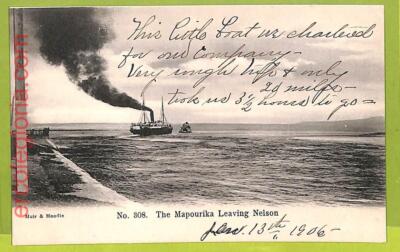 This little boat we chartered
for our company -
Very rough trip & only
20 miles -
took us 3 1/2 hours to go -
ercolegloria.com
Muir & Moodie
No. 308. The Mapourika Leaving Nelson
Jan. 13th 1906 -